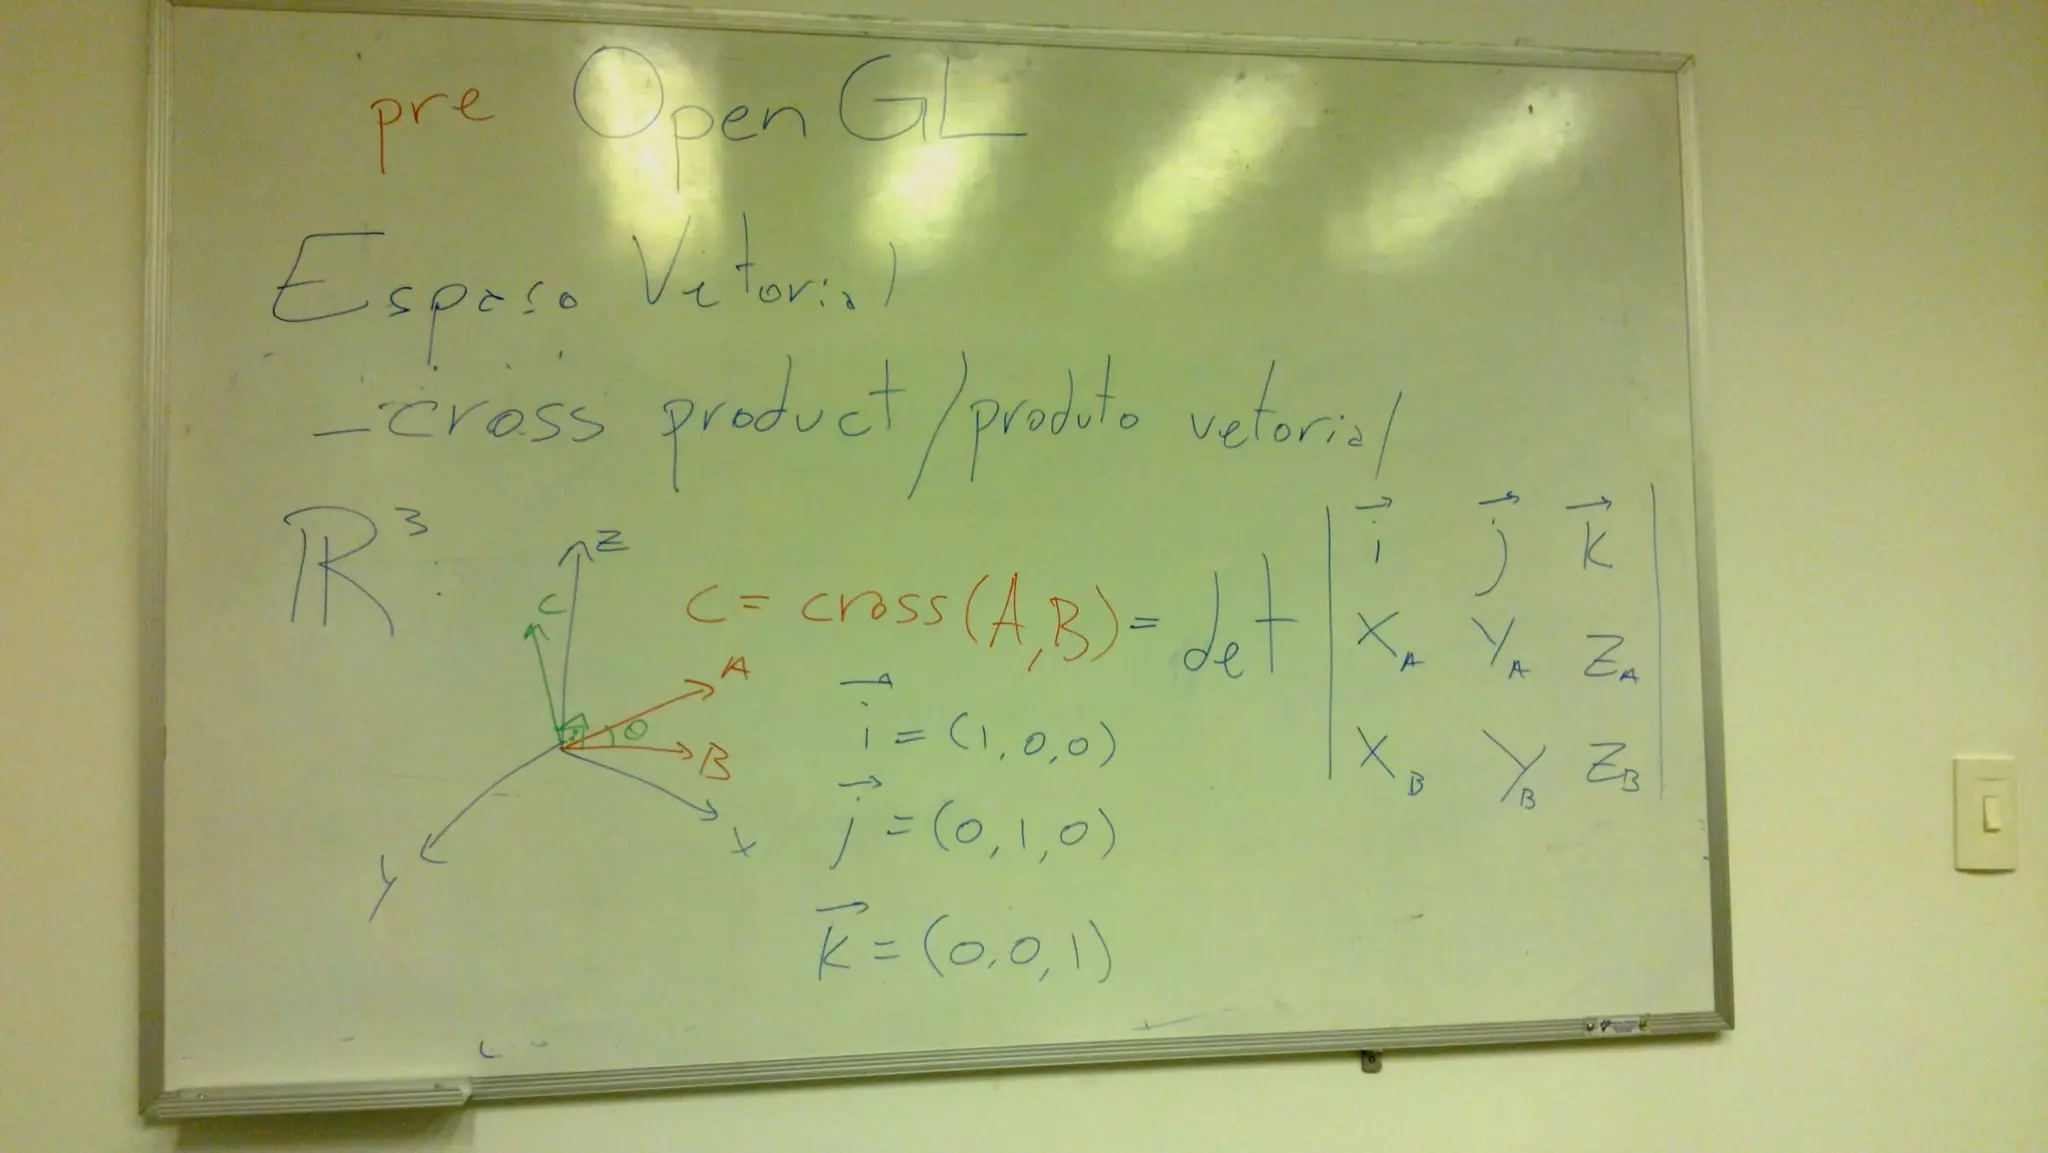 pre OpenGL
Espaço Vetorial
- cross product / produto vetorial
ℝ³:
Z
C
A
θ
B
X
Y
C = cross(A,B) = det | i⃗ j⃗ k⃗ |
| X_A Y_A Z_A |
| X_B Y_B Z_B |
i⃗ = (1,0,0)
j⃗ = (0,1,0)
k⃗ = (0,0,1)